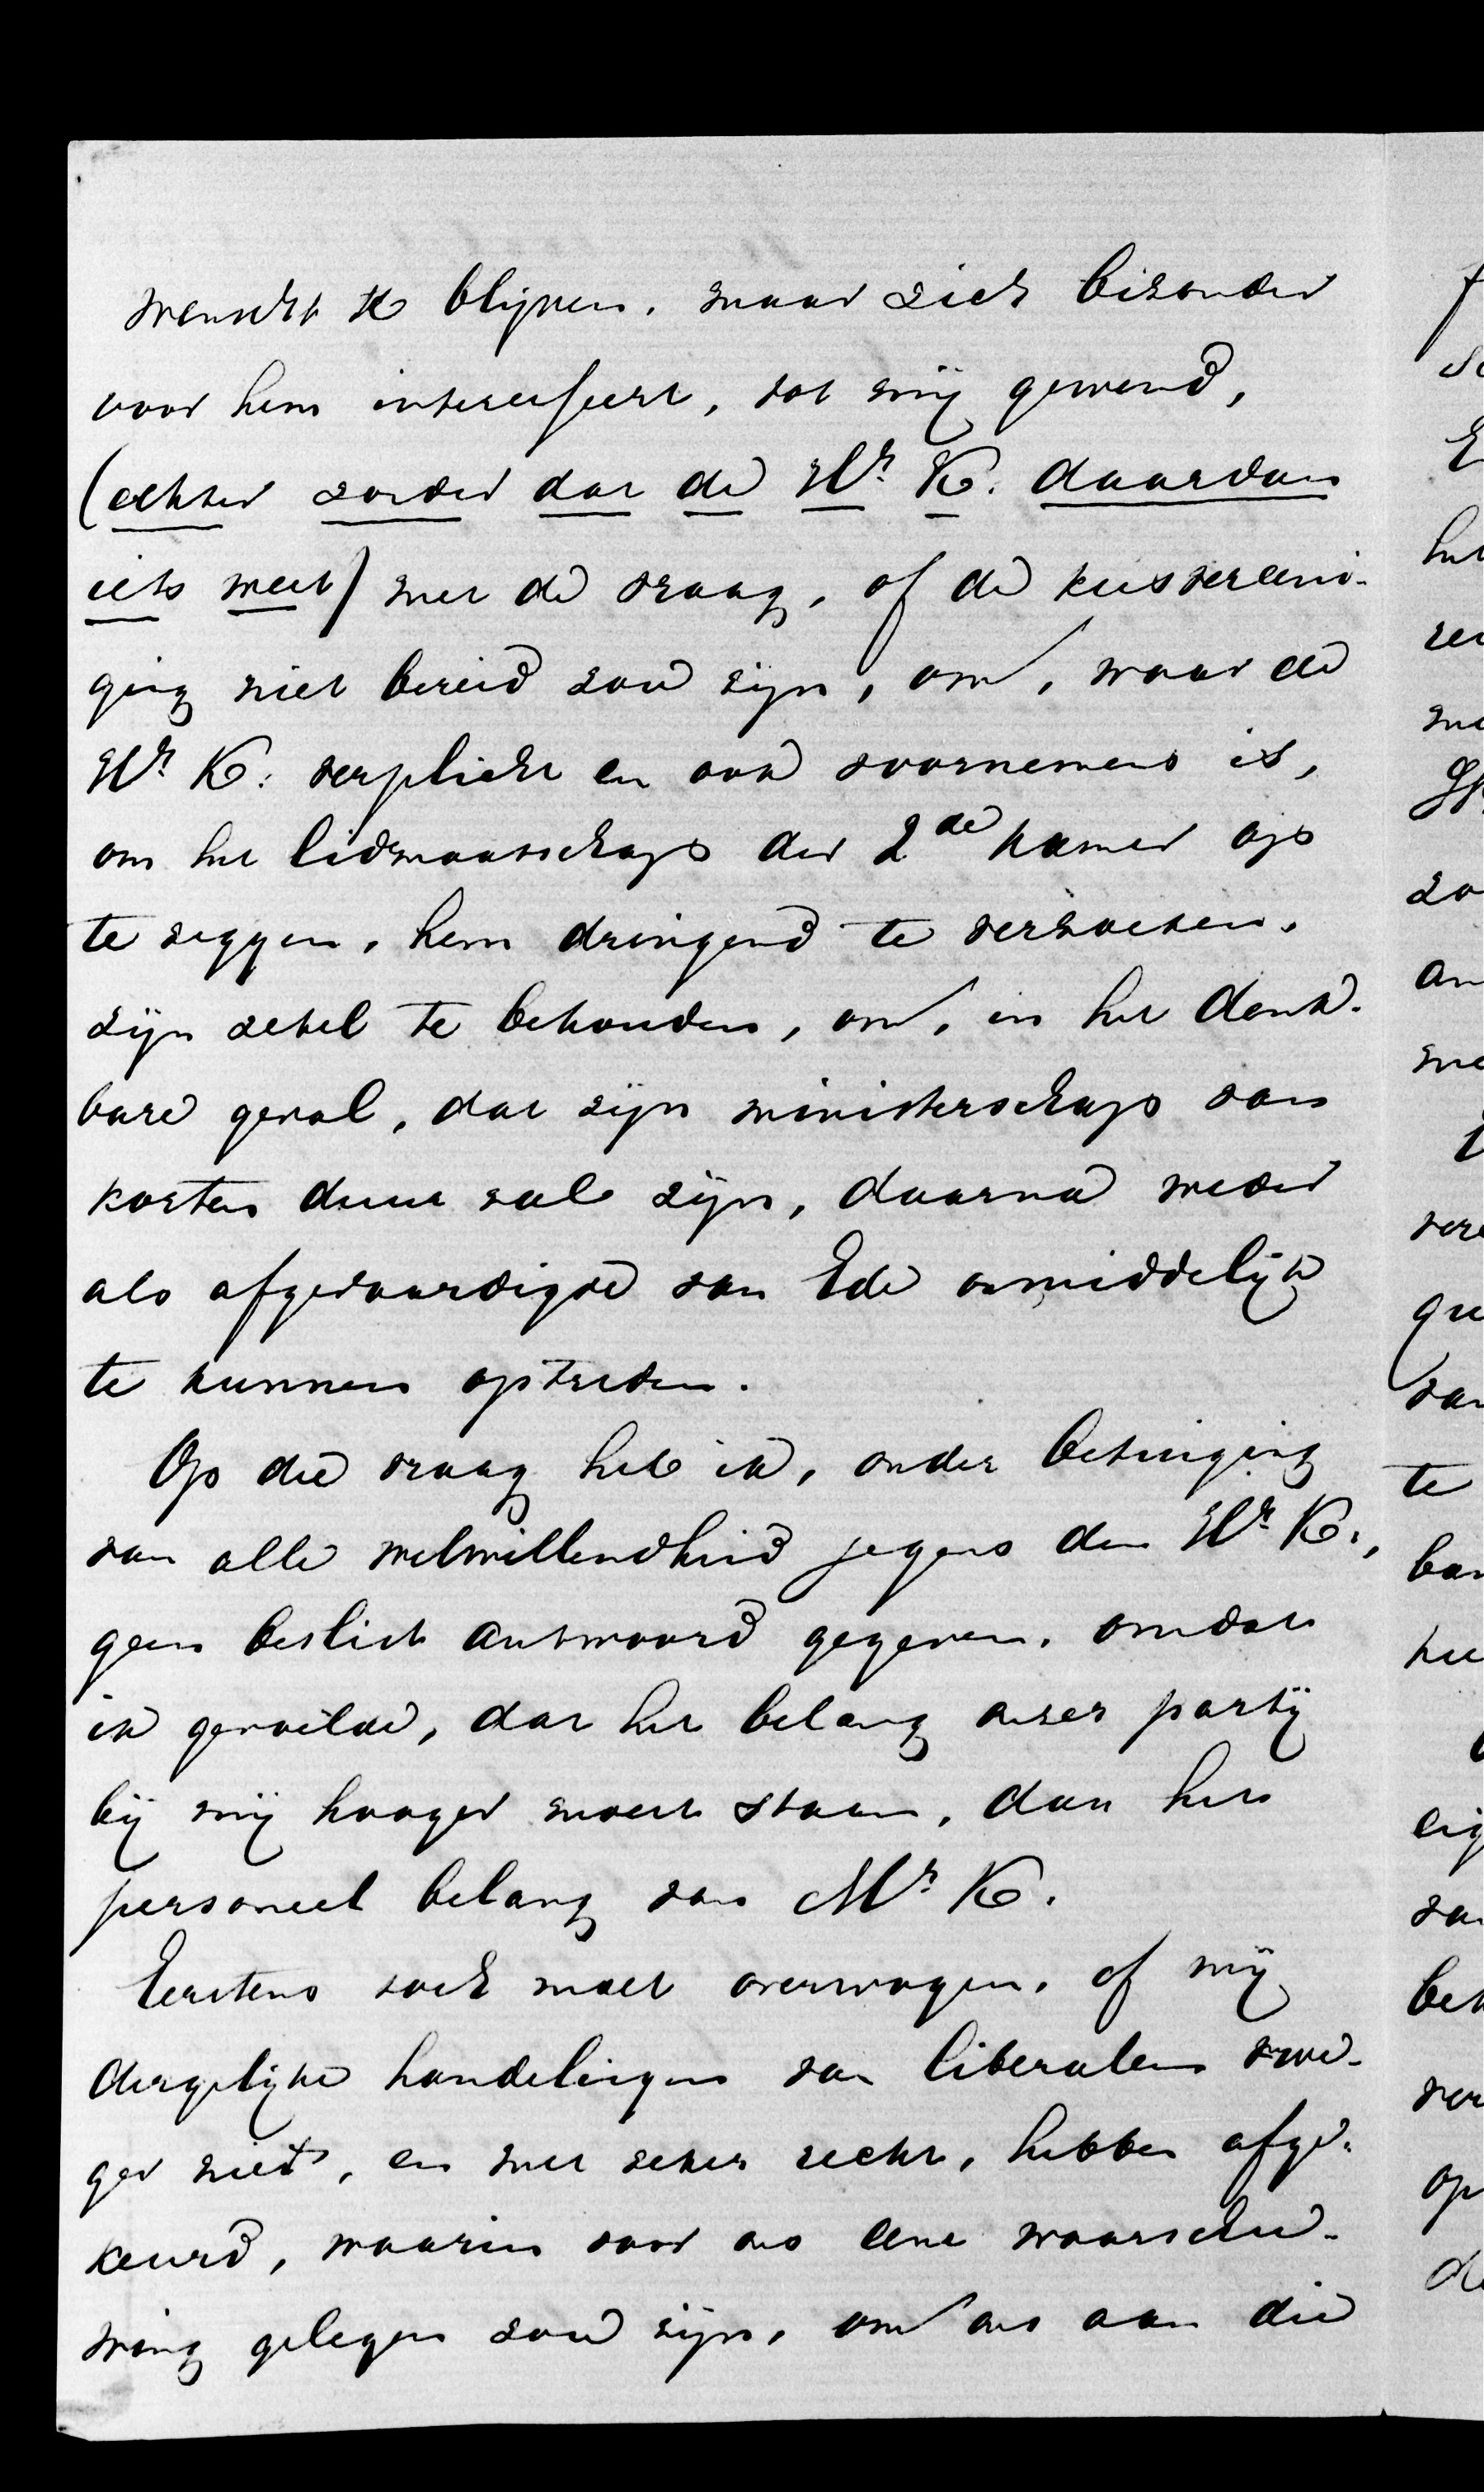 wenscht te blijven, maar zich bizonder
voor hem interesseert, tot mij gewend,
(echter zonder dat de Hr. K. daarvan
iets weet) met de vraag, of de kiesvereeni-
ging niet bereid zou zijn, om, waar de
Hr. K. verplicht en ook voornemens is,
om het lidmaatschap der 2de Kamer op
te zeggen, hem dringend te verzoeken,
zijn zetel te behouden, om, in het denk-
bare geval, dat zijn ministerschap van
korten duur zal zijn, daarna weder
als afgevaardigde van Ede onmiddelijk
te kunnen optreden.
Op die vraag heb ik, onder betuiging
van alle welwillendheid jegens den Hr. K.,
geen beslist antwoord gegeven, omdat
ik gevoelde, dat het belang onzer partij
bij mij hooger moest staan, dan het
personeel belang van Mr. K.
Eerstens toch moet overwogen, of wij
dergelijke handelingen van liberalen vroe-
ger niet, en met zeker recht, hebben afge-
keurd, waarin voor ons eene waarschu-
wing gelegen zou zijn, om ons aan die